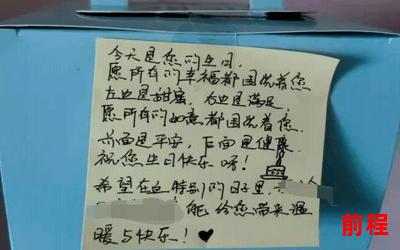 今天是您的生日,
愿所有的幸福都围着您
左边是甜蜜，右边是满足,
愿所有的如意都围着您.
前面是平安，后面是健康.
祝您生日快乐呀!
希望在这特别的日子里,
能给您带来温
暖与快乐!
前程